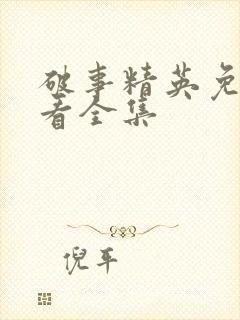 破事精英免
看全集
倪平